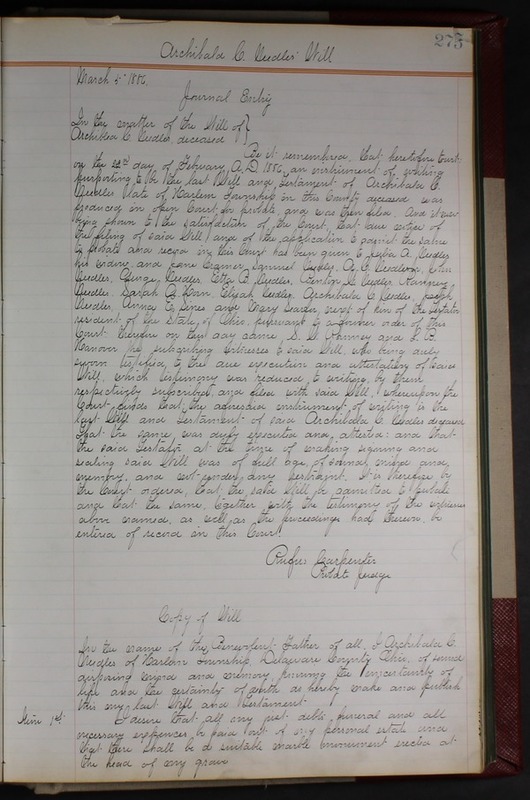 273
Archibald C. Needles Will
March 5" 1886.
Journal Entry
In the matter of the Will of }
Archibald C. Needles, deceased
Be it remembered, that heretofore to wit:
on the 22nd day of February A.D. 1886, an instrument of writing
purporting to be the last Will and Testament of Archibald C.
Needles late of Harlem Township in this County deceased was
produced in open Court for probate and was then filed. And it now
being shown to the satisfaction of the Court, that due notice of
the filing of said Will, and of the application to admit the same
to probate and record in this Court has been given to Needles
his widow, and Jane Cramer, Samuel Needles, A. G. Needles, John
Needles, George Needles, Etta B. Needles, Benton Needles,
Needles, Sarah A. Needles, Archibald C. Needles, Joseph
Needles, Anna E. and Mary next of kin of the Testator
resident of the State of Ohio, pursuant to a former order of this
Court. Therein on this day came, S. and
the subscribing witnesses to said Will, who being duly
sworn testified to the due execution and attestation of said
Will, which testimony was reduced to writing, by them
respectively subscribed, and filed with said Will, whereupon the
Court finds that the aforesaid instrument of writing is the
last Will and Testament of said Archibald C. Needles deceased
that the same was duly executed and attested: and that
the said Testator at the time of making signing and
sealing said Will was of full age, of sound mind and
memory, and not under any restraint. It is therefore by
the Court ordered, that the said Will be admitted to probate
and that the same, together with the testimony of the witnesses
above named, as well as the proceedings had therein, be
entered of record in this Court.
Rufus Carpenter
Probate Judge
Copy of Will
In the name of the Benevolent Father of all, I Archibald C.
Needles of Harlem Township, Delaware County Ohio, of sound
disposing mind and memory, the uncertainty of
life and the certainty of death do hereby make and publish
this my last Will and Testament.
Item 1st. I desire that all my just debts, funeral and all
necessary expenses be paid out of my personal estate and
that there shall be a suitable marble monument erected at
the head of my grave